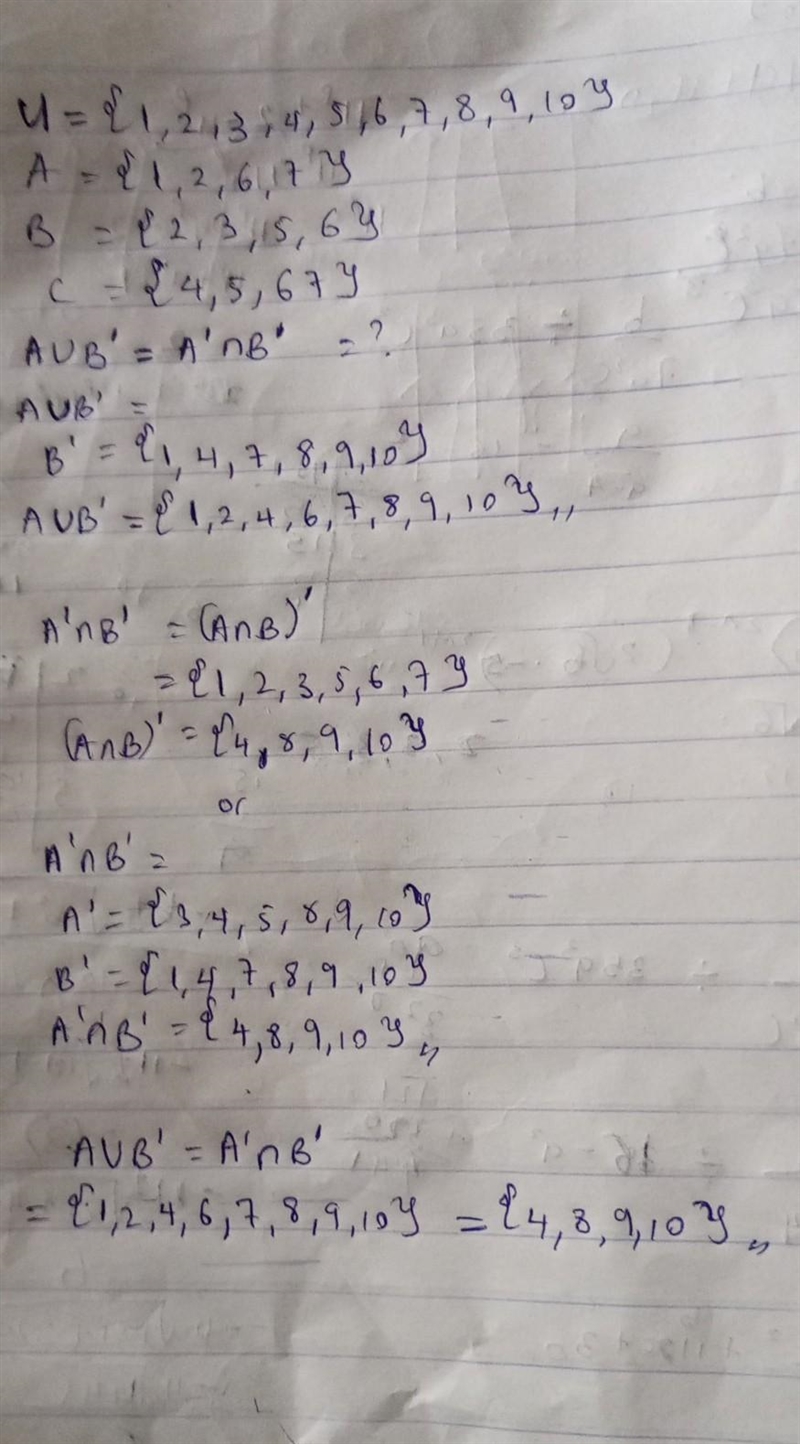 U = {1, 2, 3, 4, 5, 6, 7, 8, 9, 10}
A = {1, 2, 6, 7}
B = {2, 3, 5, 6}
C = {4, 5, 6 7}
A∪B' = A'∩B' = ?
A∪B' =
B' = {1, 4, 7, 8, 9, 10}
A∪B' = {1, 2, 4, 6, 7, 8, 9, 10},,
A'∩B' = (A∩B)'
= {1, 2, 3, 5, 6, 7}
(A∩B)' = {4, 8, 9, 10}
or
A'∩B' =
A' = {3, 4, 5, 8, 9, 10}
B' = {1, 4, 7, 8, 9, 10}
A'∩B' = {4, 8, 9, 10},,
A∪B' = A'∩B'
= {1, 2, 4, 6, 7, 8, 9, 10} = {4, 8, 9, 10},,